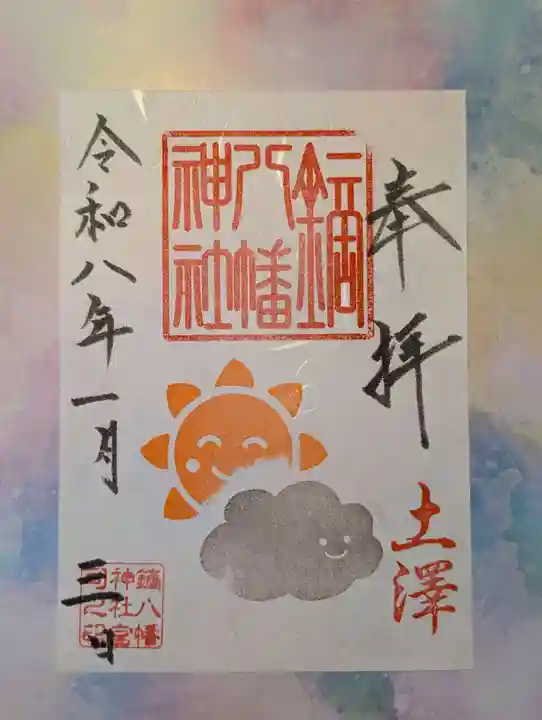 奉拝
土澤
鏑八幡神社
令和八年一月
三日
鏑八幡
神社宮
司之印